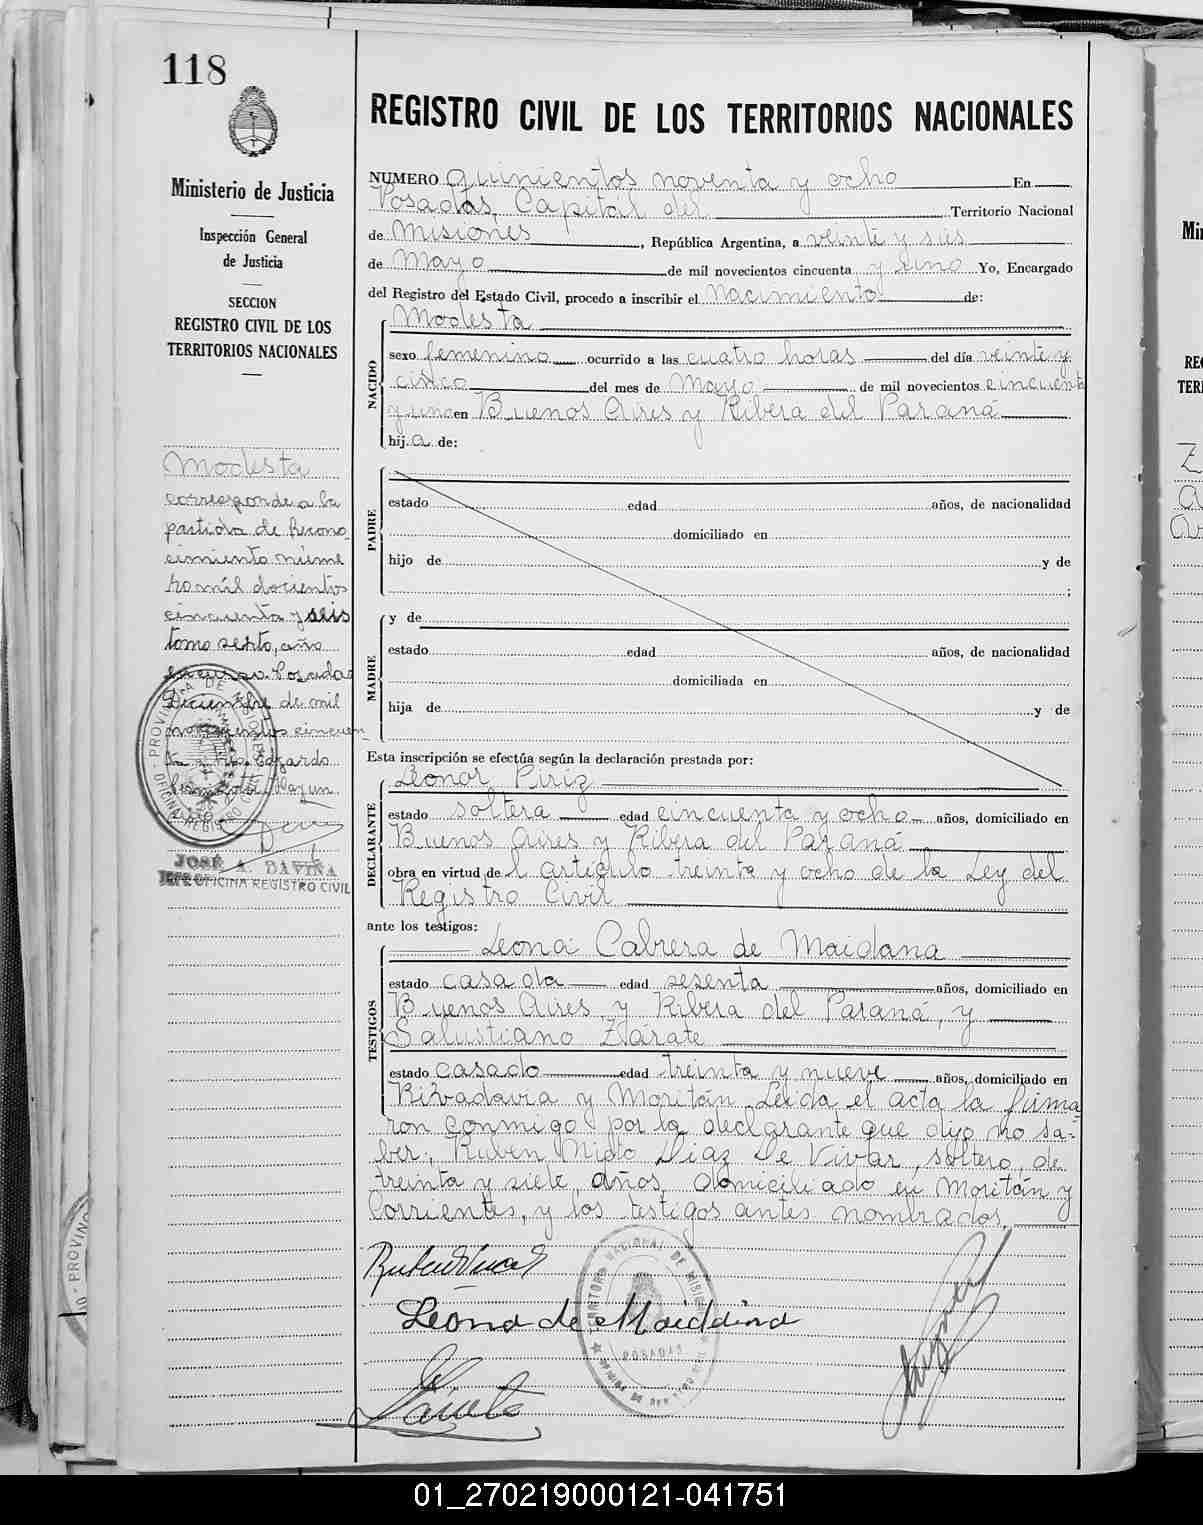 118
Ministerio de Justicia
Inspección General
de Justicia
SECCION
REGISTRO CIVIL DE LOS
TERRITORIOS NACIONALES
Modesta
corresponde a la
partida de Recono
cimiento núme
ro mil docientos
cincuenta y seis
tomo sexto, año
en curso. Posadas
Diciembre de mil
novecientos cincuen
JOSÉ A. DAVIÑA
JEFE OFICINA REGISTRO CIVIL
REGISTRO CIVIL DE LOS TERRITORIOS NACIONALES
NUMERO quinientos noventa y ocho En
Posadas, Capital del Territorio Nacional
de Misiones, República Argentina, a veinte y seis
de Mayo de mil novecientos cincuenta y uno Yo, Encargado
del Registro del Estado Civil, procedo a inscribir el nacimiento de:
NACIDO
Modesta
sexo femenino ocurrido a las cuatro horas del día veinte y
cinco del mes de Mayo de mil novecientos cincuenta
y uno en Buenos Aires y Ribera del Paraná
hij a de:
PADRE
estado edad años, de nacionalidad
domiciliado en
hijo de y de
;
MADRE
y de
estado edad años, de nacionalidad
domiciliada en
hija de y de
Esta inscripción se efectúa según la declaración prestada por:
DECLARANTE
Leonor Piriz
estado soltera edad cincuenta y ocho años, domiciliado en
Buenos Aires y Ribera del Paraná
obra en virtud de l artículo treinta y ocho de la Ley del
Registro Civil
ante los testigos:
TESTIGOS
Leona Cabrera de Maidana
estado casada edad sesenta años, domiciliado en
Buenos Aires y Ribera del Paraná, y
Salustiano Zárate
estado casado edad treinta y nueve años, domiciliado en
Rivadavia y Moritán. Leída el acta la firma-
ron conmigo por la declarante que dijo no sa-
ber, Ruben Nieto Diaz De Vivar, soltero, de
treinta y siete años, domiciliado en Moritán y
Corrientes, y los testigos antes nombrados.
Leona de Maiddana
POSADAS
01_270219000121-041751